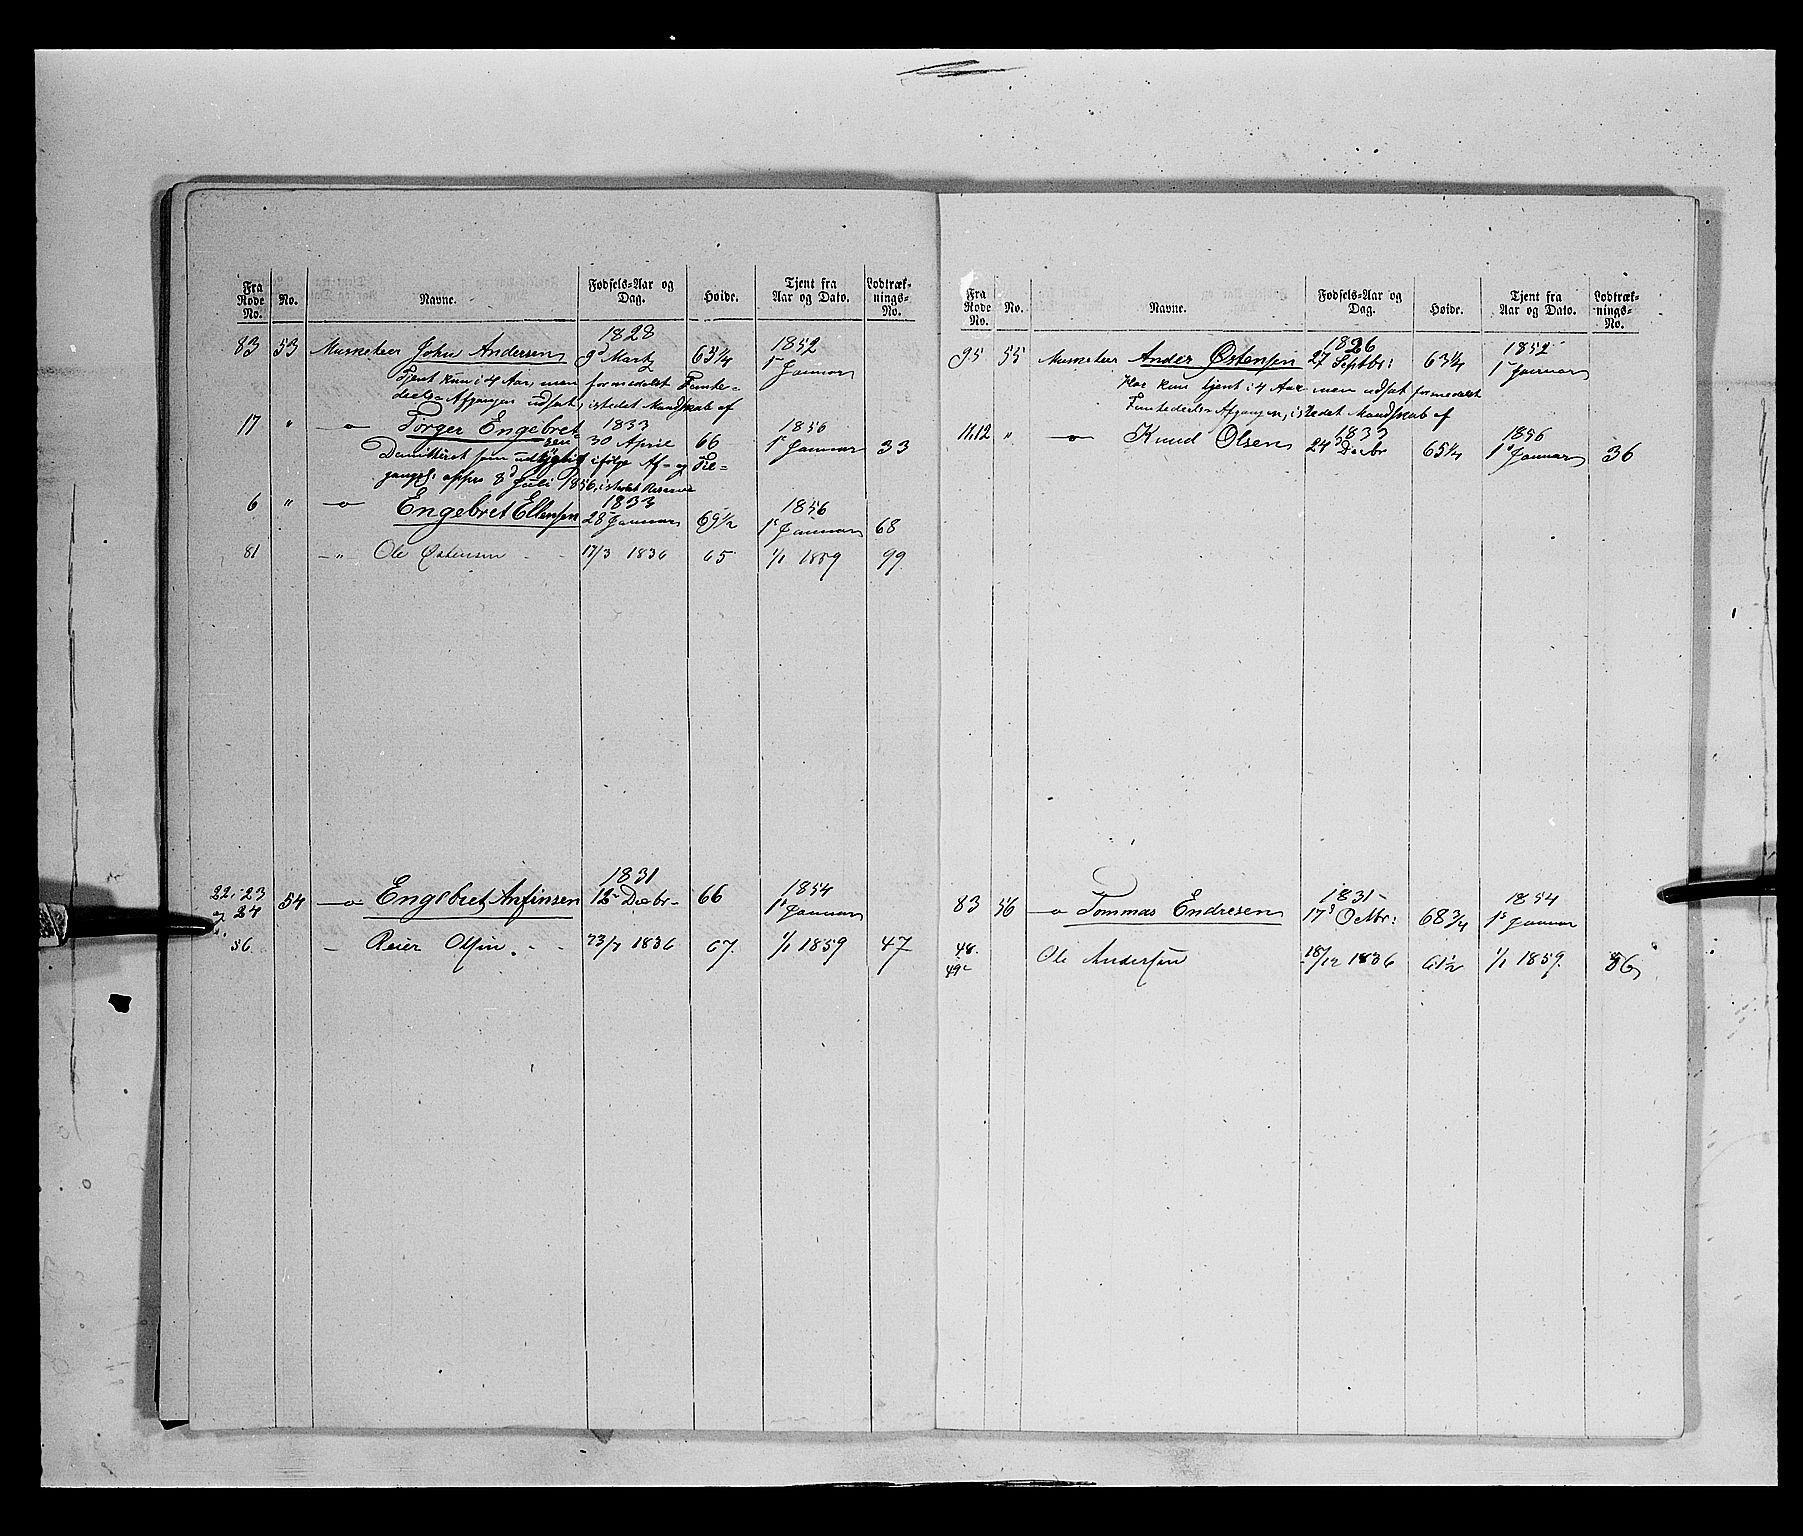 Fra Rode No. No. Navne. Fødsels=Aar og Dag. Høide. Tjent fra Aar og Dato. Lodtræk=nings=No.
1828 1852
83 53 Musketeer John Andersen 9d Marts 65 1/4 1ste Januar
Tjent kun i 4 Aar, men formedelst Femte=
deels Afgangen udsat, istedet Mandskab af
1833 1856
17 " —o— Torger Engebret=
sen 30 April 66 1ste Januar 33
Demitteret som udygtig ifølge Af= og Til=
gangsl. appr. 8d Juli 1856, istedet Reserve
1833 1856
6 " —o— Engebret Ellensen 28 Januar 69 1/2 1ste Januar 68
81 — " Ole Østensen 17/3 1836 65 1/1 1859 99
1831 1854
22, 23
og 24 54 —o— Engebret Anfinsen 12 Decbr 66 1ste Januar
56 — Reier Olsen 23/7 1836 67. 1/1 1859 47
Fra Rode No. No. Navne. Fødsels=Aar og Dag. Høide. Tjent fra Aar og Dato. Lodtræk=nings=No.
1826 1852
95 55 Musketeer Ander Østensen 27 Septbr: 63 1/4 1ste Januar
Har kun tjent i 4 Aar men udsat formedelst
Femtedeels Afgangen, istedet Mandskab af
1833 1856
11.12 " —o— Knud Olsen 24 Decbr 65 1/4 1ste Januar 36
1831 1854
83 56 —o— Tommas Endresen 17d Octbr: 68 3/4 1ste Januar
48.
49 Ole Andersen 18/12 1836 61 1/2 1/1 1859. 86